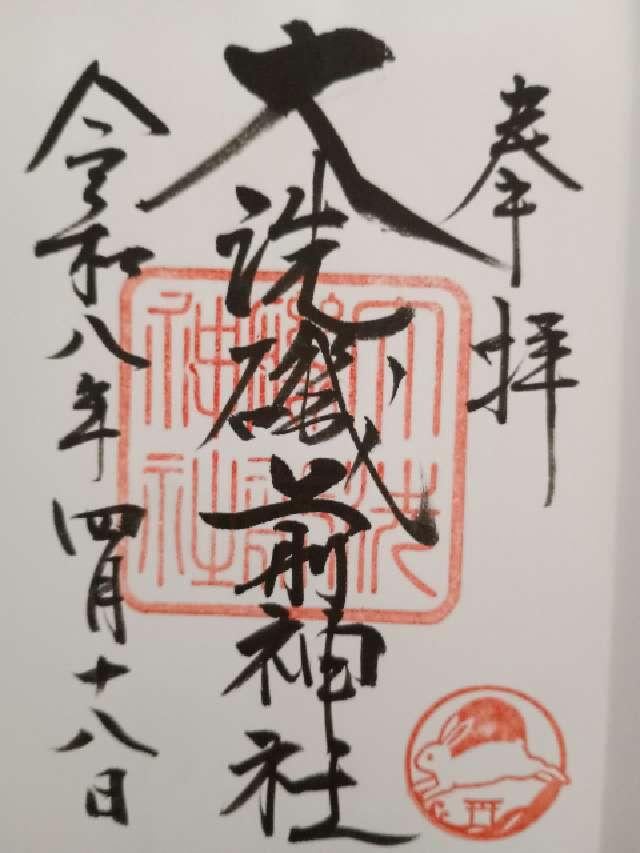 奉拝
大洗磯前神社
令和八年四月十八日
大洗磯前神社